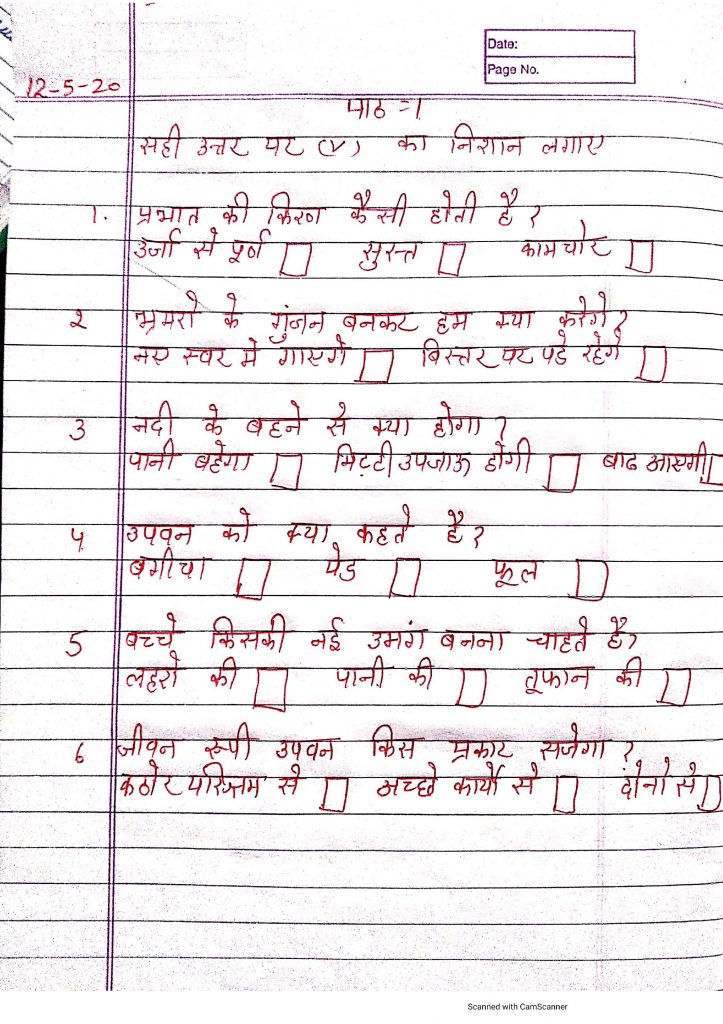 Date:
Page No.
12-5-20
पाठ =1
सही उत्तर पर (✓) का निशान लगाए
1. प्रभात की किरण कैसी होती है ?
उर्जा से पूर्ण □ सुस्त □ कामचोर □
2 भ्रमरो के गुंजन बनकर हम क्या करेगे ?
नए स्वर मे गाएगे □ बिस्तर पर पडे रहेगे □
3 नदी के बहने से क्या होगा ?
पानी बहेगा □ मिट्टी उपजाऊ होगी □ बाढ आएगी □
4 उपवन को क्या कहते है ?
बगीचा □ पेड □ फूल □
5 बच्चे किसकी नई उमंग बनना चाहते है ?
लहरो की □ पानी की □ तूफान की □
6 जीवन रूपी उपवन किस प्रकार सजेगा ?
कठोर परिश्रम से □ अच्छे कार्यो से □ दोनो से □
Scanned with CamScanner